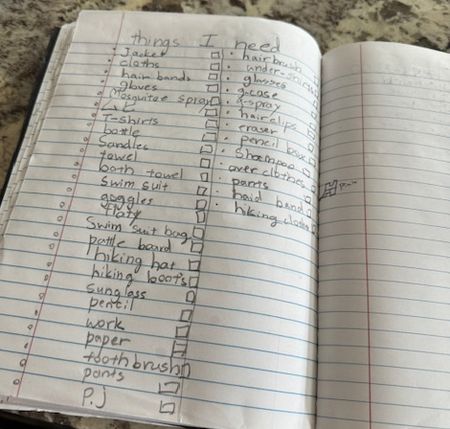 things I need
Jacket
cloths
hair bands
gloves
Mosquitae spray
T-shirts
bottle
Sandles
towel
both towel
Swim suit
goggles
Swim suit bag
pattle board
hiking hat
hiking boots
sunglass
pencil
work
paper
toothbrush
pants
P.J
hairbrush
under-shirts
glasses
g-case
g-spray
hairclips
eraser
pencil
Shoompoo
over clothes
pants
haid band
hiking cloths